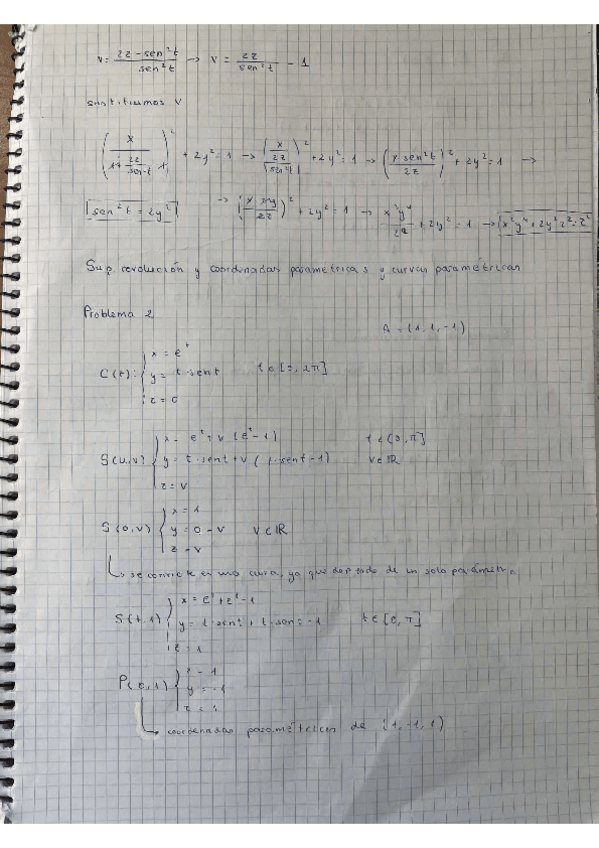 v = (2z - sen²t)/(sen²t) → v = 2z/(sen²t) - 1
sustituimos v
(x/(1 + 2z/(sen²t) - 1))² + 2y² = 1 → (x/(2z/(sen²t)))² + 2y² = 1 → ((x sen²t)/(2z))² + 2y² = 1 →
sen²t = 2y² → ((x 2y²)/(2z))² + 2y² = 1 → (x²y⁴)/(z²) + 2y² = 1 → x²y⁴ + 2y²z² = z²
Sup. revolución y coordenadas parametricas y curvas paramétricas
Problema 2
A = (1, 1, -1)
C(t): { x = e^t
y = t·sent t ∈ [0, 2π]
z = 0
S(u,v) { x = e^t + v (e^t - 1) t ∈ [0, π]
y = t·sent + v (t·sent - 1) v ∈ ℝ
z = v
S(0,v) { x = 1
y = 0 - v v ∈ ℝ
z = v
↳ se convierte en una curva, ya que depende de un solo parámetro
S(t,1) { x = e^t + e^t - 1
y = t·sent + t·sent - 1 t ∈ [0, π]
z = 1
P(0,1) { x = 1
y = -1
z = 1
↳ coordenadas paramétricas de (1, -1, 1)